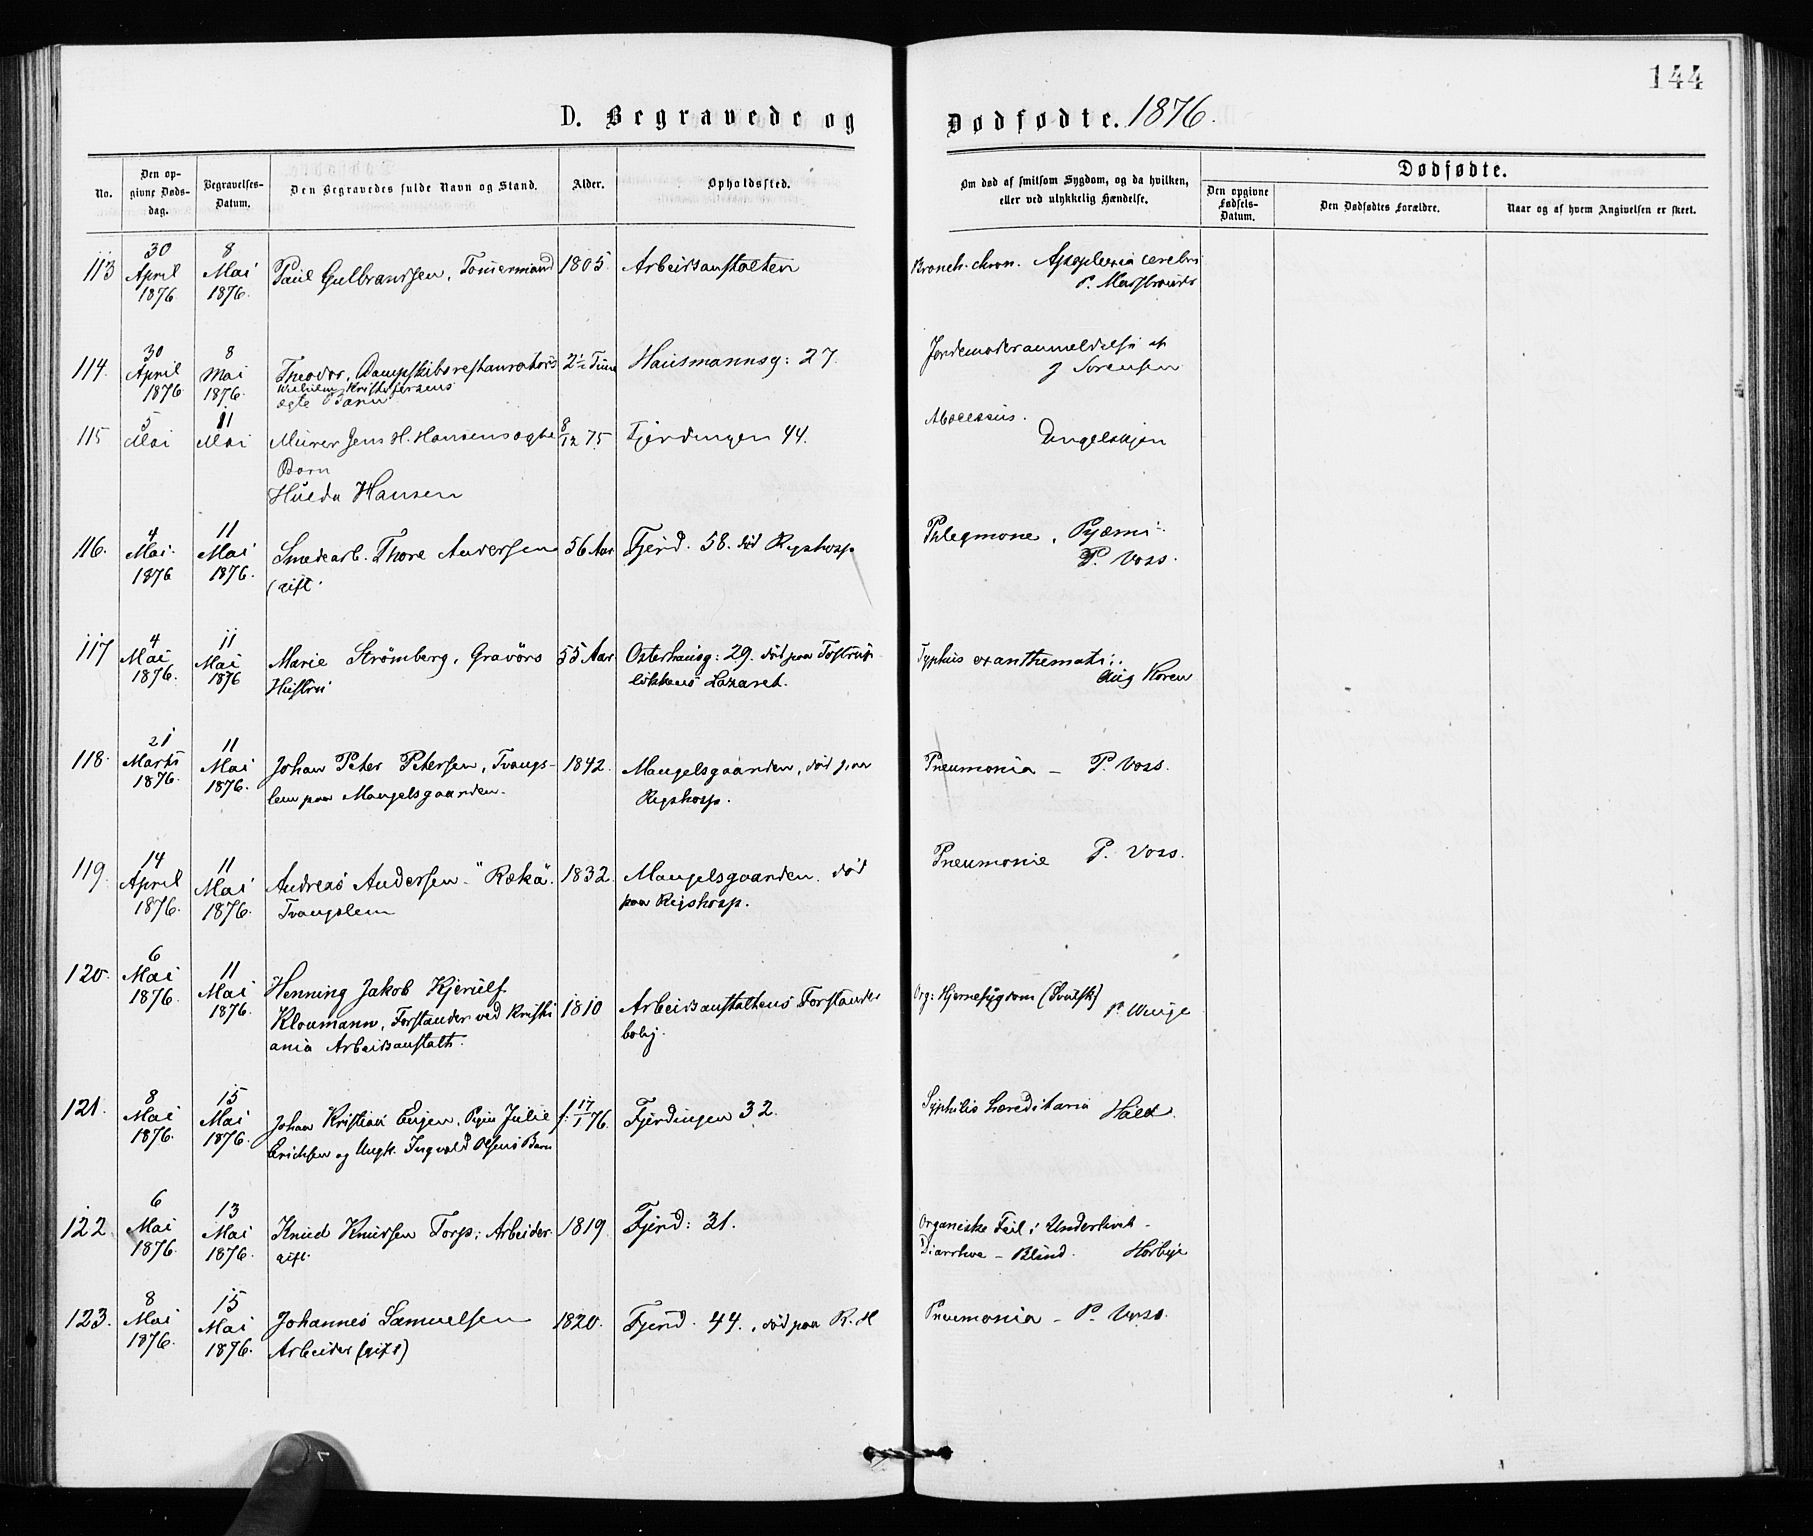 144
D. Begravede og Dødfødte. 1876.
No.
Den opgivne Dødsdag.
Begravelses-Datum.
Den Begravedes fulde Navn og Stand.
Alder.
Opholdssted.
Om død af smitsom Sygdom, og da hvilken, eller ved ulykkelig Hændelse.
Dødfødte.
Den opgivne Fødsels-Datum.
Den Dødfødtes Forældre.
Naar og af hvem Angivelsen er skeet.
113 30 April 1876. 8 Mai 1876. Paul Gulbranssen, Tømermand 1805. Arbeidsanstalten Bronch. chron. Apoplexia cerebri
P.
114. 30 April 1876 8 Mai 1876. Theodor, Dampskibsrestauratørs 2½ Time Hausmannsg: 27. Jordemoderanmeldelse af
Kristofersens J Sørensen
ægte Barn
115 5 Mai 11 Mai Murer Jens H. Hansens ægte 8/12 75. Fjerdingen 44. Abscessus.
Barn Engelskjøn
Hulda Hansen
116. 4 Mai. 1876 11 Mai 1876. Smedearb. Thore Andersen 56 Aar Fjerd. 58. død Rigshosp Phlegmone, Pyæmi
(gift. P. Voss.
117 4 Mai 1876. 11 Mai 1876 Marie Strömberg, Gravörs 55 Aar Osterhausg: 29. død paa Tøstrup Typhus exanthemati:.
Hustru løkkens Lazaret. Aug Koren
118. 21 Marts 1876. 11 Mai 1876. Johan Peter Petersen, Tvangs- 1842. Mangelsgaarden, død paa Pneumonia – P. Voss.
lem paa Mangelsgaarden. Rigshosp.
119. 14 April 1876. 11 Mai 1876. Andreas Andersen "Rækä". 1832. Mangelsgaarden. død Pneumonie P. Voss.
Tvangslem paa Rigshosp.
120. 6 Mai 1876. 11 Mai 1876. Henning Jakob Kjerulf
Kloumann, Forstander ved Kristi 1810 Arbeidsanstaltens Forstander Org: Hjernesygdom P Winge
ania Arbeidsanstalt. bolig.
121. 8 Mai 1876. 15 Mai 1876. Johan Kristian Eugen, Pigen Julie f. 17/1 76. Fjerdingen 32. Syphilis hæreditaria Hald.
Erichsen og Ungk. Ingvald Olsens Barn
122 6 Mai 1876. 13 Mai 1876. Knud Knudsen Torp: Arbeider 1819. Fjerd: 31. Organiske Feil i Underlivet –
gift. Diarrhoe – Blind. Horbye
123. 8 Mai 1876. 15 Mai 1876. Johannes Samuelsen 1820. Fjerd. 44., død paa R. H Pneumonia – P. Voss.
Arbeider (gift)